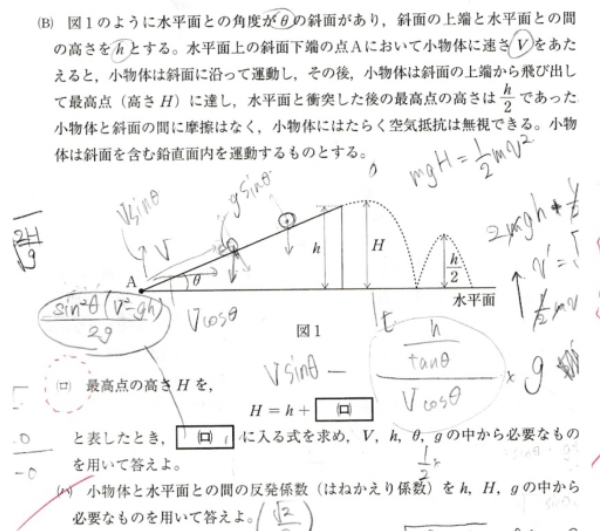 (B) 図1のように水平面との角度がθの斜面があり，斜面の上端と水平面との間
の高さをhとする。水平面上の斜面下端の点Aにおいて小物体に速さVをあた
えると，小物体は斜面に沿って運動し，その後，小物体は斜面の上端から飛び出し
て最高点（高さH）に達し，水平面と衝突した後の最高点の高さはh/2であった
小物体と斜面の間に摩擦はなく，小物体にはたらく空気抵抗は無視できる。小物
体は斜面を含む鉛直面内を運動するものとする。
mgH = 1/2 mV²
Vsinθ
gsinθ
2mgh
√2H/g
V
V'=
h
H
h/2
1/2 mV
A
θ
水平面
sin²θ(V²-gh)/2g
Vcosθ
図1
Vsinθ - h/tanθ / Vcosθ × g
(ロ) 最高点の高さHを，
H = h + (ロ)
と表したとき，(ロ)に入る式を求め，V，h，θ，gの中から必要なもの
を用いて答えよ。
1/2
(ハ) 小物体と水平面との間の反発係数（はねかえり係数）をh，H，gの中から
必要なものを用いて答えよ。